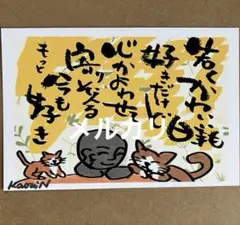 若くかわいい託も
好きだけど
心かよわせて
寄りそえる
今も好き
もっと
メルカリ
KaoriN